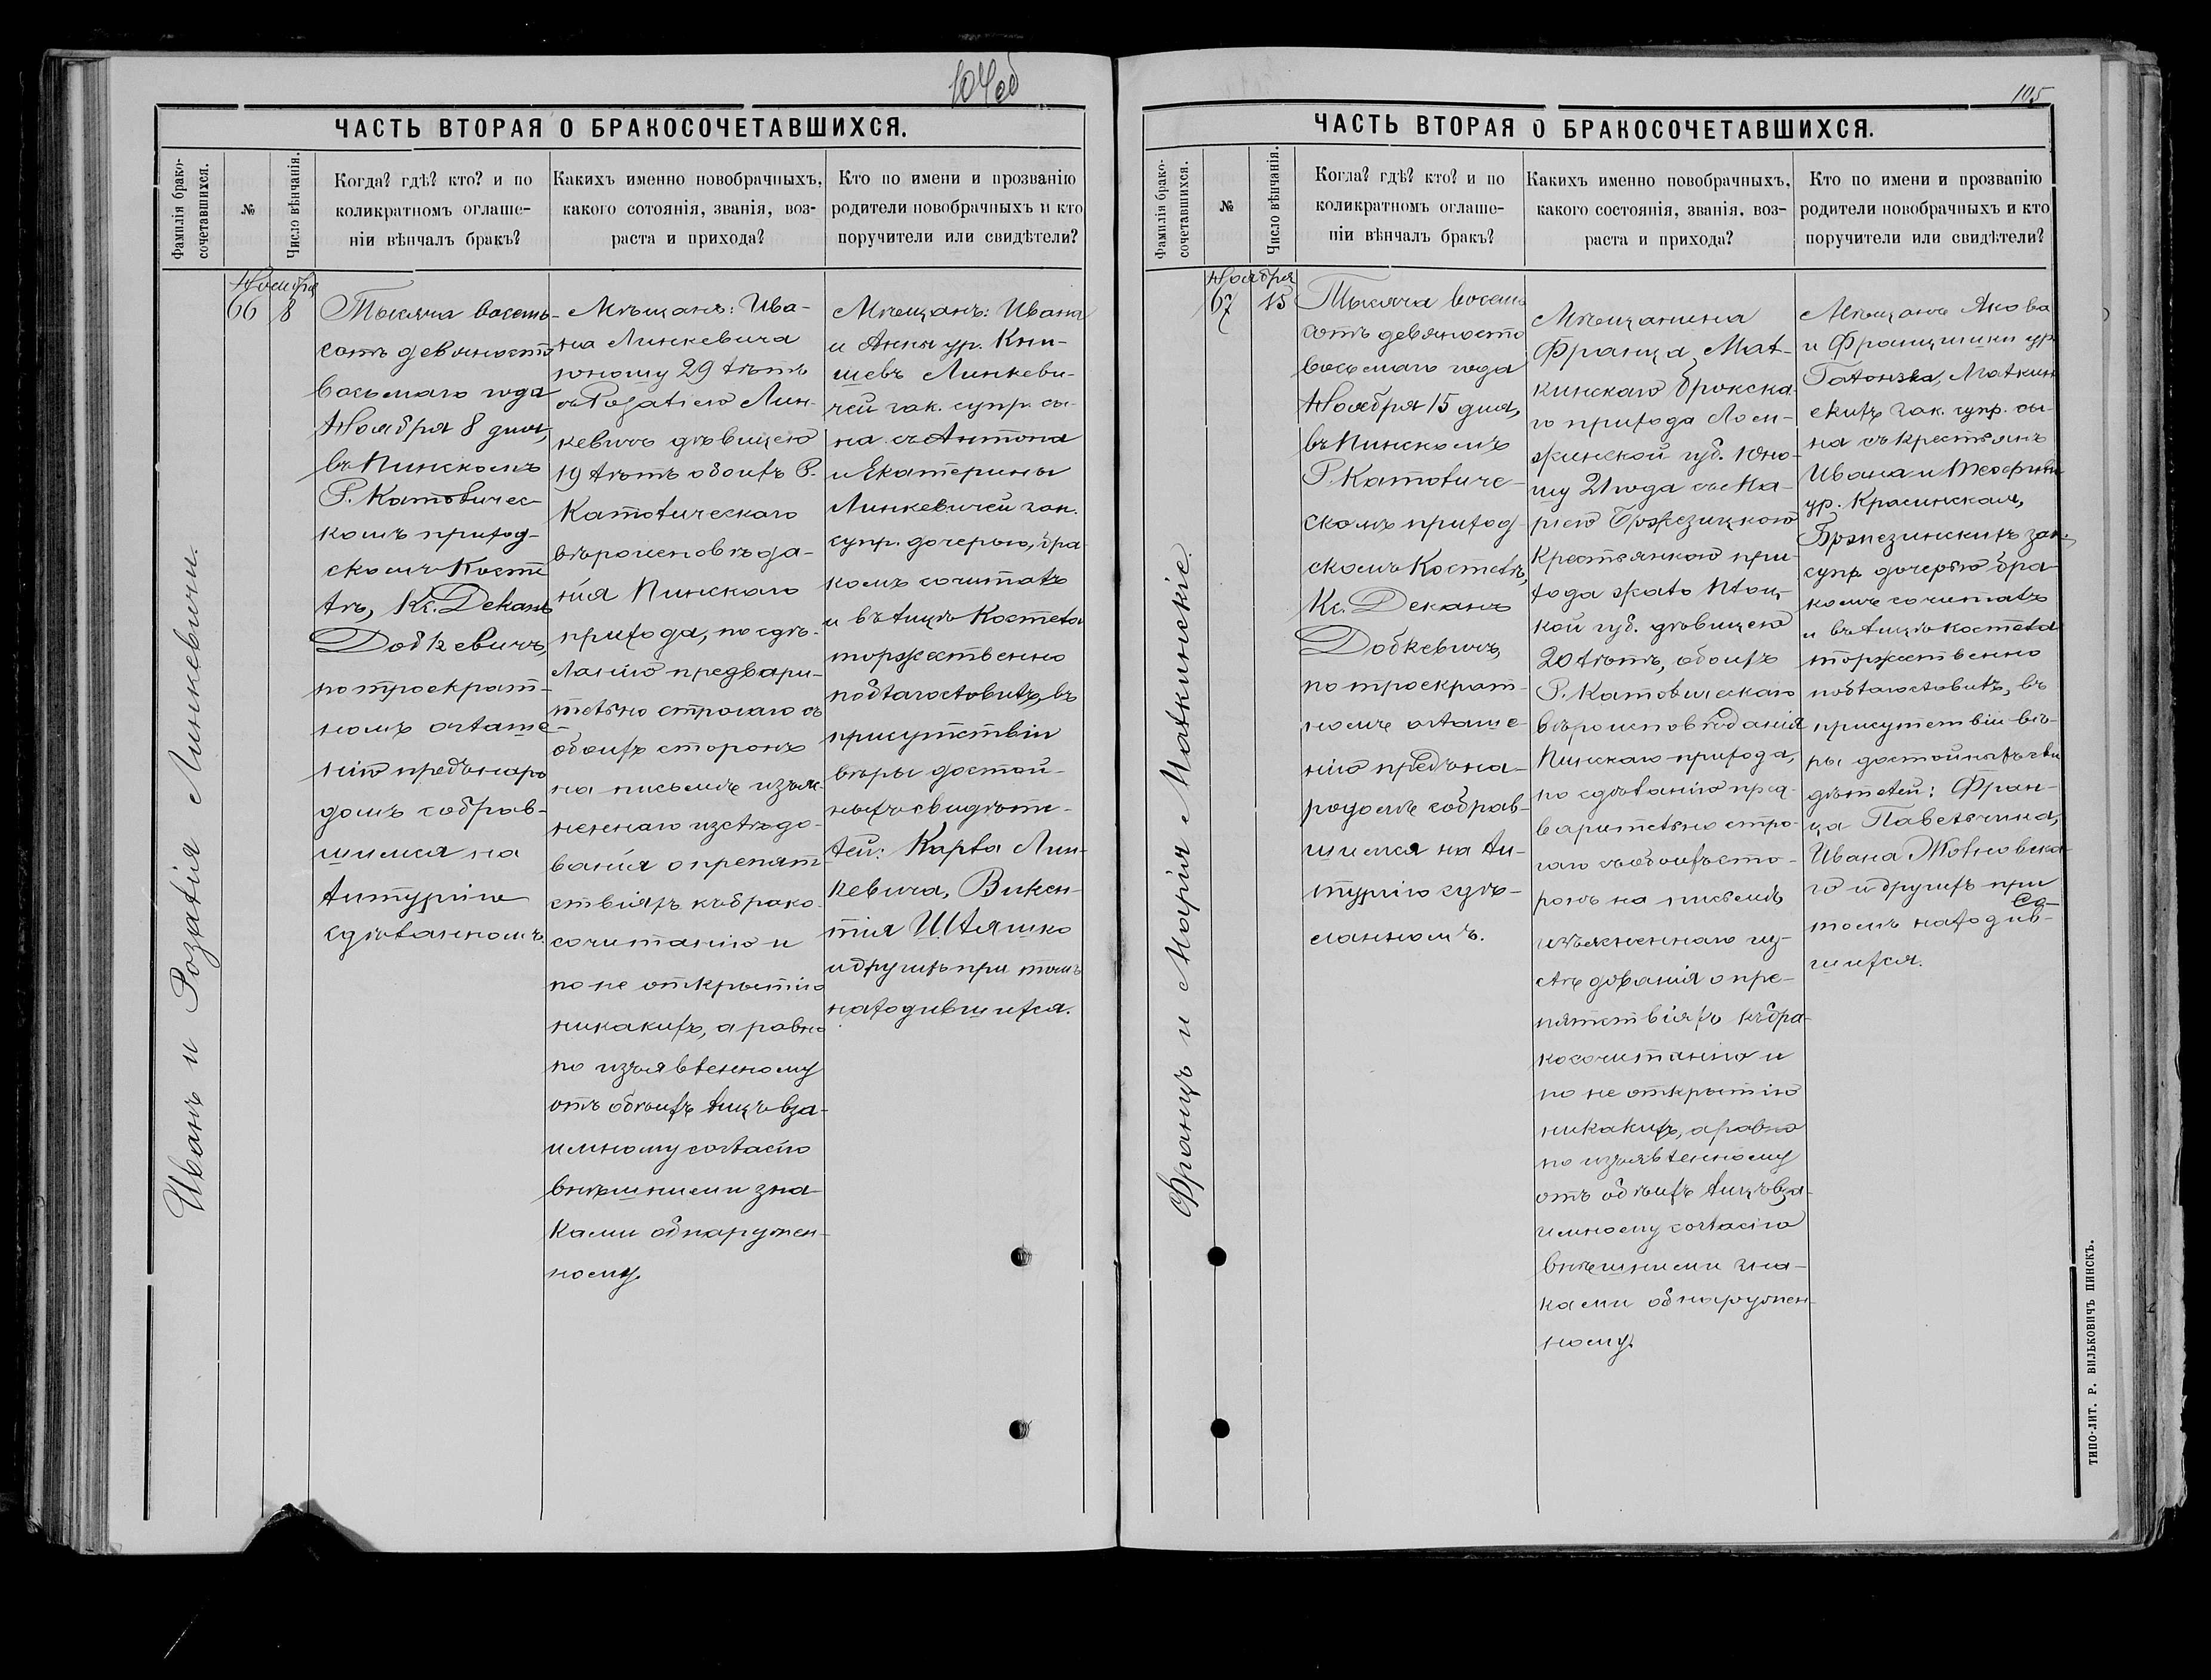 104об
ЧАСТЬ ВТОРАЯ О БРАКОСОЧЕТАВШИХСЯ.
Фамилія брако-
сочетавшихся.
№
Число вѣнчанія.
Когда? гдѣ? кто? и по
коликратномъ оглаше-
ніи вѣнчалъ бракъ?
Какихъ именно новобрачныхъ,
какого сотоянія, званія, воз-
раста и прихода?
Кто по имени и прозванію
родители новобрачныхъ и кто
поручители или свидѣтели?
Иванъ и Розалія Линкевичи.
Ноября
66 8
Тысяча восемь-
сотъ девяносто
восьмаго года
Ноября 8 дня,
въ Пинскомъ
Р. Католичес-
комъ приход-
скомъ Косте
лѣ, Кс. Деканъ
Добкевичъ,
по троекрат-
номъ оглаше-
нію предъ наро
домъ собрав-
шимся на
литургію
сдѣланномъ.
Мѣщанъ: Ива-
на Линкевича
юношу 29 лѣтъ
съ Розаліею Лин-
кевичъ дѣвицею
19 лѣтъ обоихъ Р.
Католическаго
вѣроисповѣда-
нія Пинскаго
прихода, по сдѣ-
ланію предвари-
тельно строгаго съ
обоихъ сторонъ
на письмѣ изъяс
неннаго изслѣдо-
ванія о препят
ствіяхъ къ брако
сочитанію и
по не открытію
никакихъ, а равно
по изъявленному
отъ обоихъ лицъ вза-
имному согласію
внѣшними зна-
ками обнаружен-
ному.
Мѣщанъ: Ивана
и Анны ур. Кни-
шевъ Линкеви-
чей зак. супр. сы-
на съ Антона
и Екатерины
Линкевичей зак.
супр. дочерью, бра-
комъ сочиталъ
и въ лицѣ Костела
торжественно
поблагословилъ, въ
присутствіи
вѣры достой-
ныхъ свидѣте-
лей: Карла Лин-
кевича, Викен-
тія Шляшко
и другихъ при томъ
находившихся.
105
ЧАСТЬ ВТОРАЯ О БРАКОСОЧЕТАВШИХСЯ.
Фамилія брако-
сочетавшихся.
№
Число вѣнчанія.
Когда? гдѣ? кто? и по
коликратномъ оглаше-
ніи вѣнчалъ бракъ?
Какихъ именно новобрачныхъ,
какого состоянія, званія, воз-
раста и прихода?
Кто по имени и прозванію
родители новобрачныхъ и кто
поручители или свидѣтели?
Францъ и Марія Малкинскіе.
Ноября
67 15
Тысяча восемь
сотъ девяносто
восьмаго года
Ноября 15 дня,
въ Пинскомъ
Р. Католиче-
скомъ приход
скомъ Костелѣ,
Кс. Деканъ
Добкевичъ,
по троекрат-
номъ оглаше-
нію предъ на-
родомъ собрав-
шимся на ли-
тургію сдѣ-
ланномъ.
Мѣщанина
Франца Мал-
кинскаго Брокска-
го прихода Лом-
жинской губ. юно-
шу 21 года съ Ма-
ріею
Крестьянкою при-
хода
кой губ. дѣвицею
20 лѣтъ, обоихъ
Р. Католическаго
вѣроисповѣданія
Пинскаго прихода,
по сдѣланію пред-
варительно стро-
гаго съ обоихъ сто-
ронъ на письмѣ
изъясненнаго из-
слѣдованія о пре-
пятствіяхъ къ бра-
косочитанію и
по не открытію
никакихъ, а равно
по изъявленному
отъ обоихъ лицъ вза-
имному согласію
внѣшними зна-
ками обнаружен-
ному.
Мѣщанъ Якова
и Францишки ур.
Малкин
скихъ зак. супр. сы-
на съ крестьянъ
Ивана и Теофили
ур. Красинская,
Бржезинскихъ зак.
супр. дочерью бра-
комъ сочиталъ
и въ лицѣ костела
торжественно
поблагословилъ, въ
присутствіи вѣ-
ры достойныхъ сви
дѣтелей: Фран-
ца Павельчика,
Ивана Жолновска-
го и другихъ при
семъ находив-
шихся.
ТИПО-ЛИТ. Р. ВИЛЬКОВИЧЪ ПИНСКЪ.